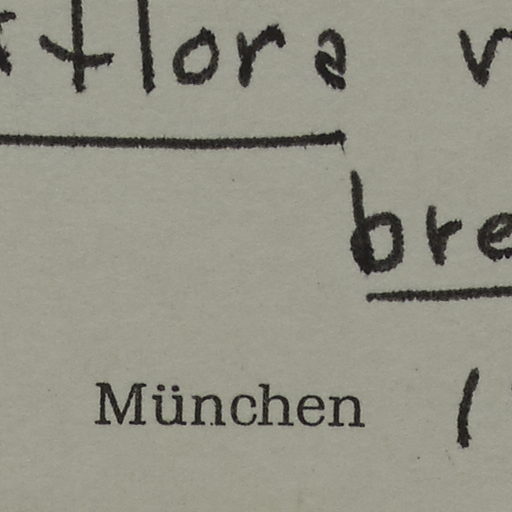 flora
bre
München